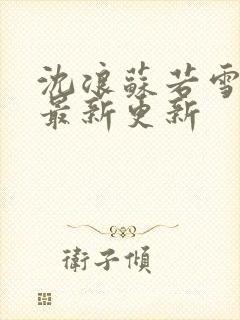 沈浪蘇若雪
最新更新
衛子傾